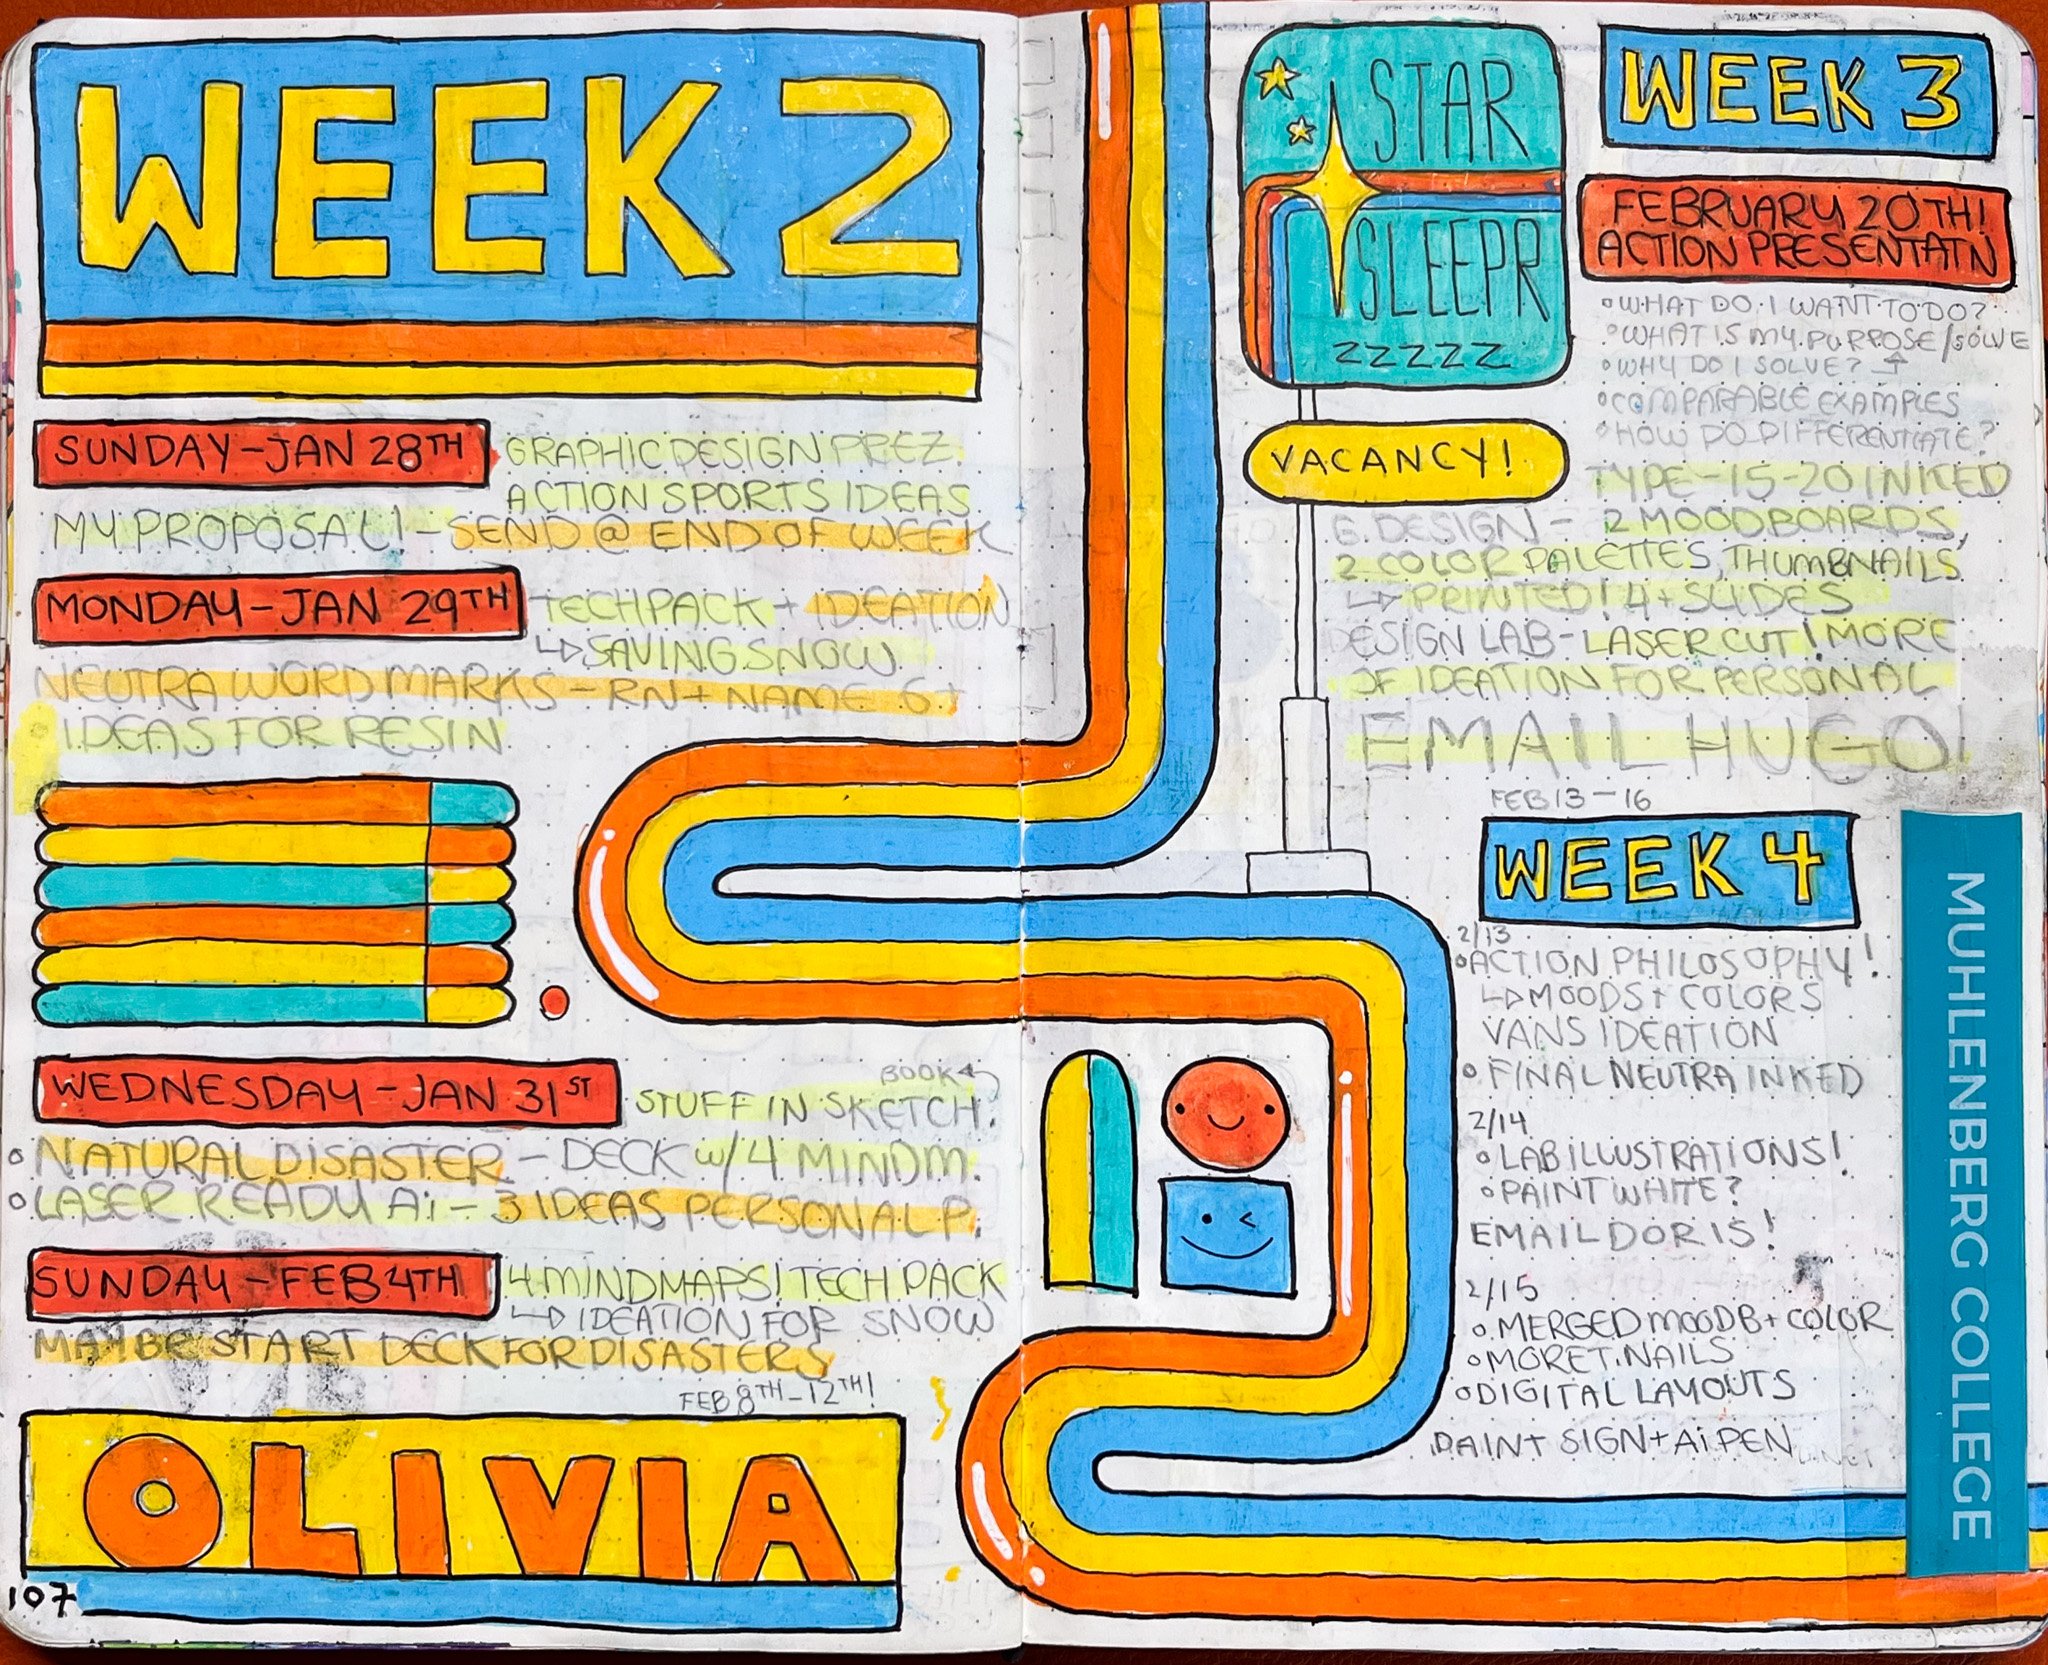 WEEK 2
SUNDAY-JAN 28TH
GRAPHIC DESIGN PREZ.
ACTION SPORTS IDEAS
MY PROPOSAL! - SEND @ END OF WEEK
MONDAY-JAN 29TH
TECHPACK + IDEATION
↳ SAVING SNOW
NEUTRA WORD MARKS - RN + NAME 6+
IDEAS FOR RESIN
WEDNESDAY-JAN 31ST
BOOK
STUFF IN SKETCH.
NATURAL DISASTER - DECK W/ 4 MINDM.
LASER READY Ai - 3 IDEAS PERSONAL P.
SUNDAY-FEB 4TH
4 MINDMAPS! TECH PACK
↳ IDEATION FOR SNOW
MAYBE START DECK FOR DISASTERS
FEB 8TH-12TH!
OLIVIA
107
STAR
SLEEPR
ZZZZZ
VACANCY!
WEEK 3
FEBRUARY 20TH!
ACTION PRESENTATN
WHAT DO I WANT TO DO?
WHAT IS MY PURPOSE/SOLVE
WHY DO I SOLVE?
COMPARABLE EXAMPLES
HOW DO DIFFERENTIATE?
TYPE - 15-20 INKED
G. DESIGN - 2 MOODBOARDS,
2 COLOR PALETTES, THUMBNAILS
↳ PRINTED! 4+ SLIDES
DESIGN LAB - LASER CUT! MORE
OF IDEATION FOR PERSONAL
EMAIL HUGO!
FEB 13-16
WEEK 4
2/13
ACTION PHILOSOPHY!
↳ MOODS + COLORS
VANS IDEATION
FINAL NEUTRA INKED
2/14
LAB ILLUSTRATIONS!
PAINT WHITE?
EMAIL DORIS!
2/15
MERGED MOODB + COLOR
MORE T.NAILS
DIGITAL LAYOUTS
PAINT SIGN + Ai PEN
MUHLENBERG COLLEGE